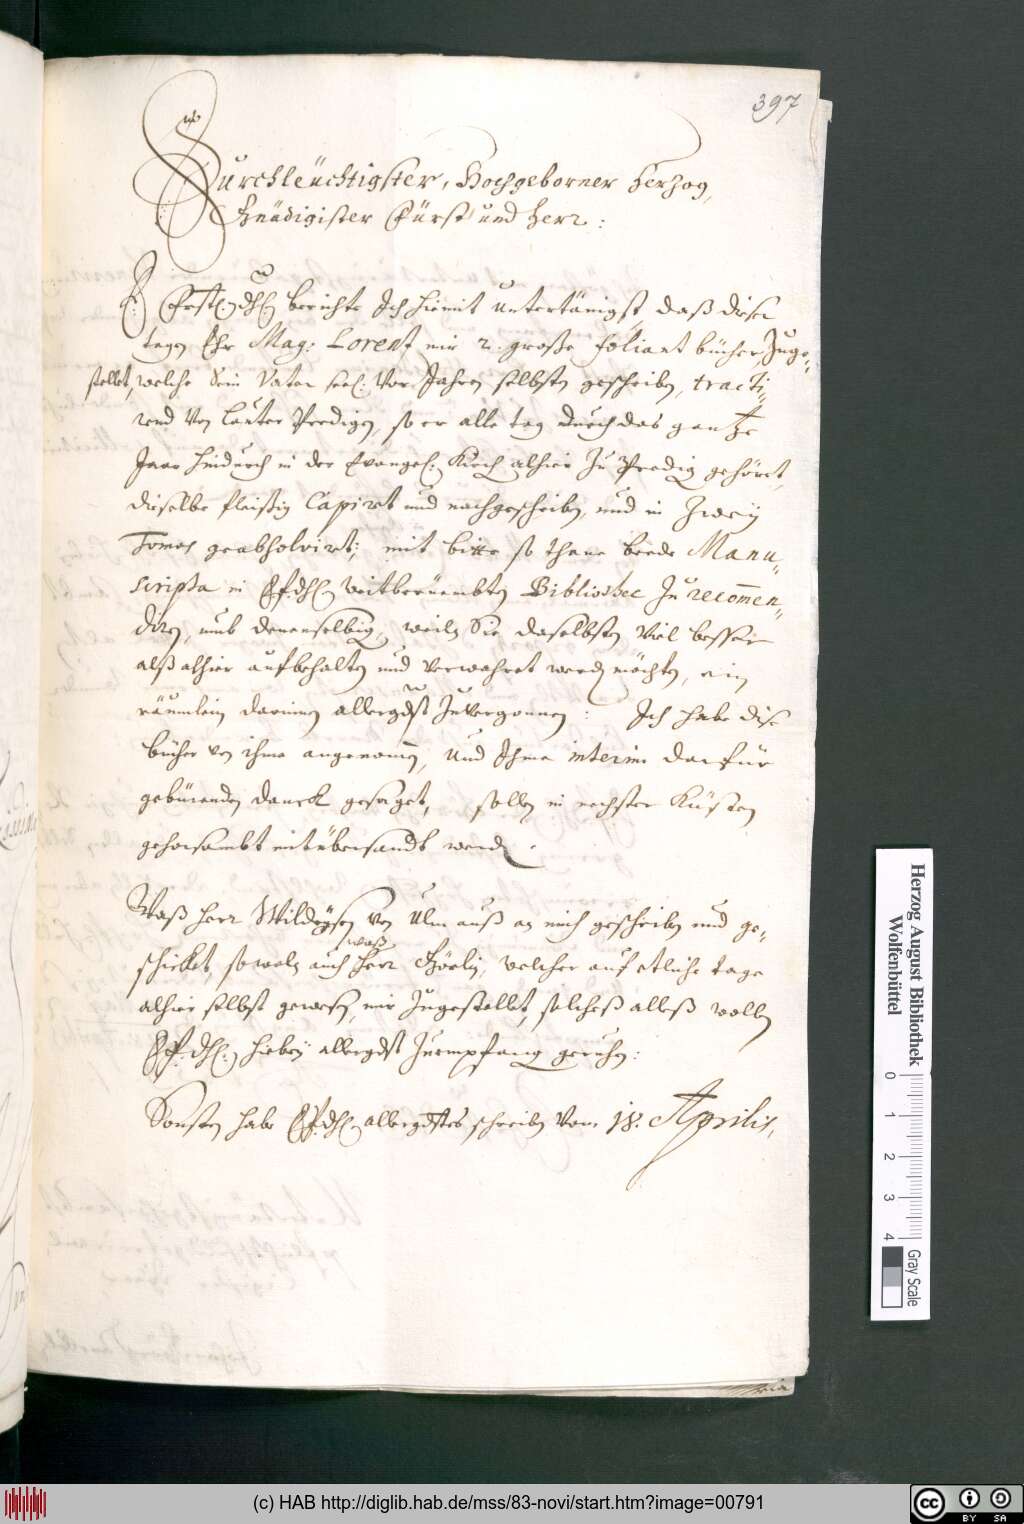 397
Durchleüchtigster, Hochgeborner Herzog,
Gnädigister Fürst und Herr:
E: Frstl. dhl. berichte Ich hiemit untertänigst daß dise
tagen Ehr Mag: Lorentz mir 2. große foliant bücher, Zuge-
stellet, welche Sein Vater seel. Vor Jahren selbsten geschriben, tracti-
rend Von lauter Predigen, so er alle tag durch das gantze
Jaar hindurch in der Evangel. Kirch alhier Zu Predig gehöret,
dieselbe fleißig Capirt und nachgeschriben, und in Zwey
Tomos geabsolvirt; mit bitte so thane beede Manu-
scripta in E.F.dhl. weitberüembten Bibliothec Zu recom̄en-
diren, umb denenselbigen, weilen Sie daselbsten Viel besser
alß alhier aufbehalten und verwahret werden möchten, ein
räumlein darinnen allergdst Zuvergonnen: Ich habe dise
bücher von ihme angenom̄en, und Ihme interim darfür
gebürenden danck gesaget, sollen in nechster Küsten
gehorsambst mitübersandt werden.
Waß Herr Wildeysen von Ulm auß an mich geschriben und ge-
schicket, sowoln auch waß Herr Görlin, welcher auf etliche tage
alhier selbst gewesen, mir Zugestellet, solcheß alleß wollen
E.F.dhl. hiebey allergdst Zuempfang geruhen:
Sonsten habe E.F.dhl. allergdstes schreiben Vom 18. Aprilis,
Herzog August Bibliothek
Wolfenbüttel
0 1 2 3 4
Gray Scale
(c) HAB http://diglib.hab.de/mss/83-novi/start.htm?image=00791
cc BY SA